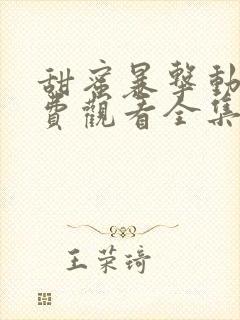 甜蜜暴擊動
費觀看全集
王荣琦